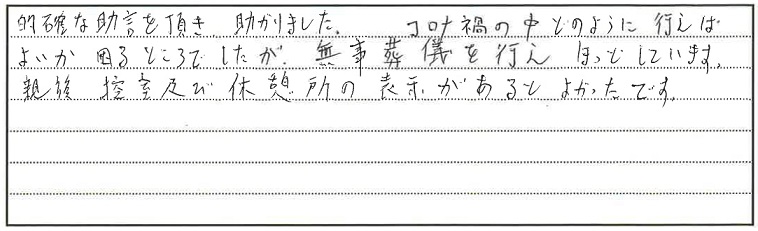 的確な助言を頂き、助かりました。 コロナ禍の中どのように行えば
よいか困るところでしたが、無事葬儀を行えほっとしています。
親族控室及び休憩所の表示があるとよかったです。